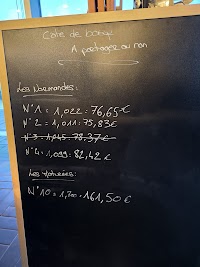 Côte de boeuf
A partager ou non
Les Normandes:
N°1 = 1,022 : 76,65€
N°2 = 1,011 : 75,83€
N°3 = 1,045 : 78,37€
N°4 = 1,099 : 82,42€
Les
N°10 = 1,700 : 161,50€